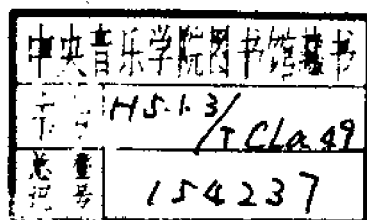 中央音乐学院图书馆藏书
书号 H5.1.3/TCLa 49
总登记号 154237